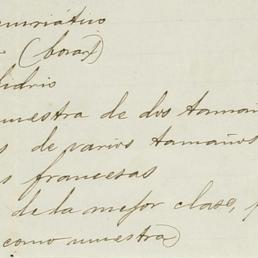 muriático
(borax)
vidrio
muestra de dos tamañ
s de varios tamaños
s francesas
de la mejor clase, p
como muestra)